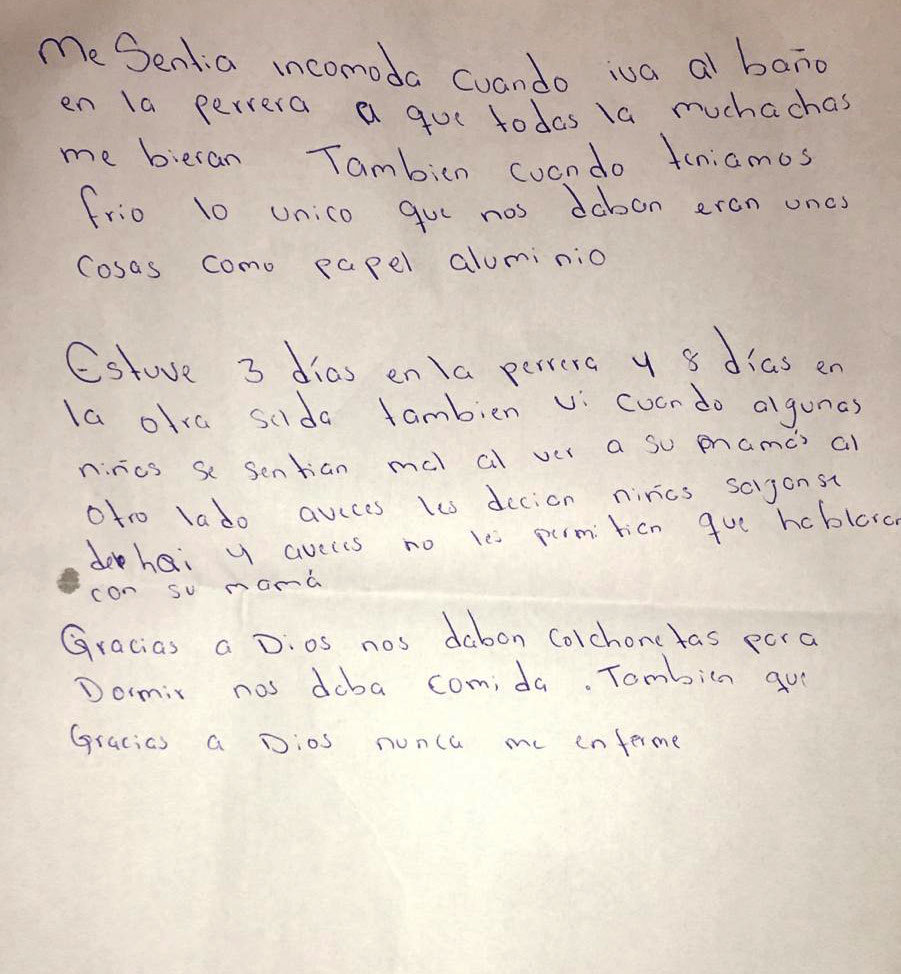 Me Sentia incomoda cuando iva al baño
en la perrera a que todas la muchachas
me bieran Tambien cuando teniamos
frio lo unico que nos daban eran unas
cosas como papel aluminio
Estuve 3 días en la perrera y 8 días en
la otra selda tambien vi cuando algunas
niñas se sentian mal al ver a su mamás al
otro lado aveces les decian niñas salganse
de hai y aveces no les permitian que hablaran
con su mamá
Gracias a Dios nos daban colchonetas para
Dormir nos daba comida . Tambien que
Gracias a Dios nunca me enferme